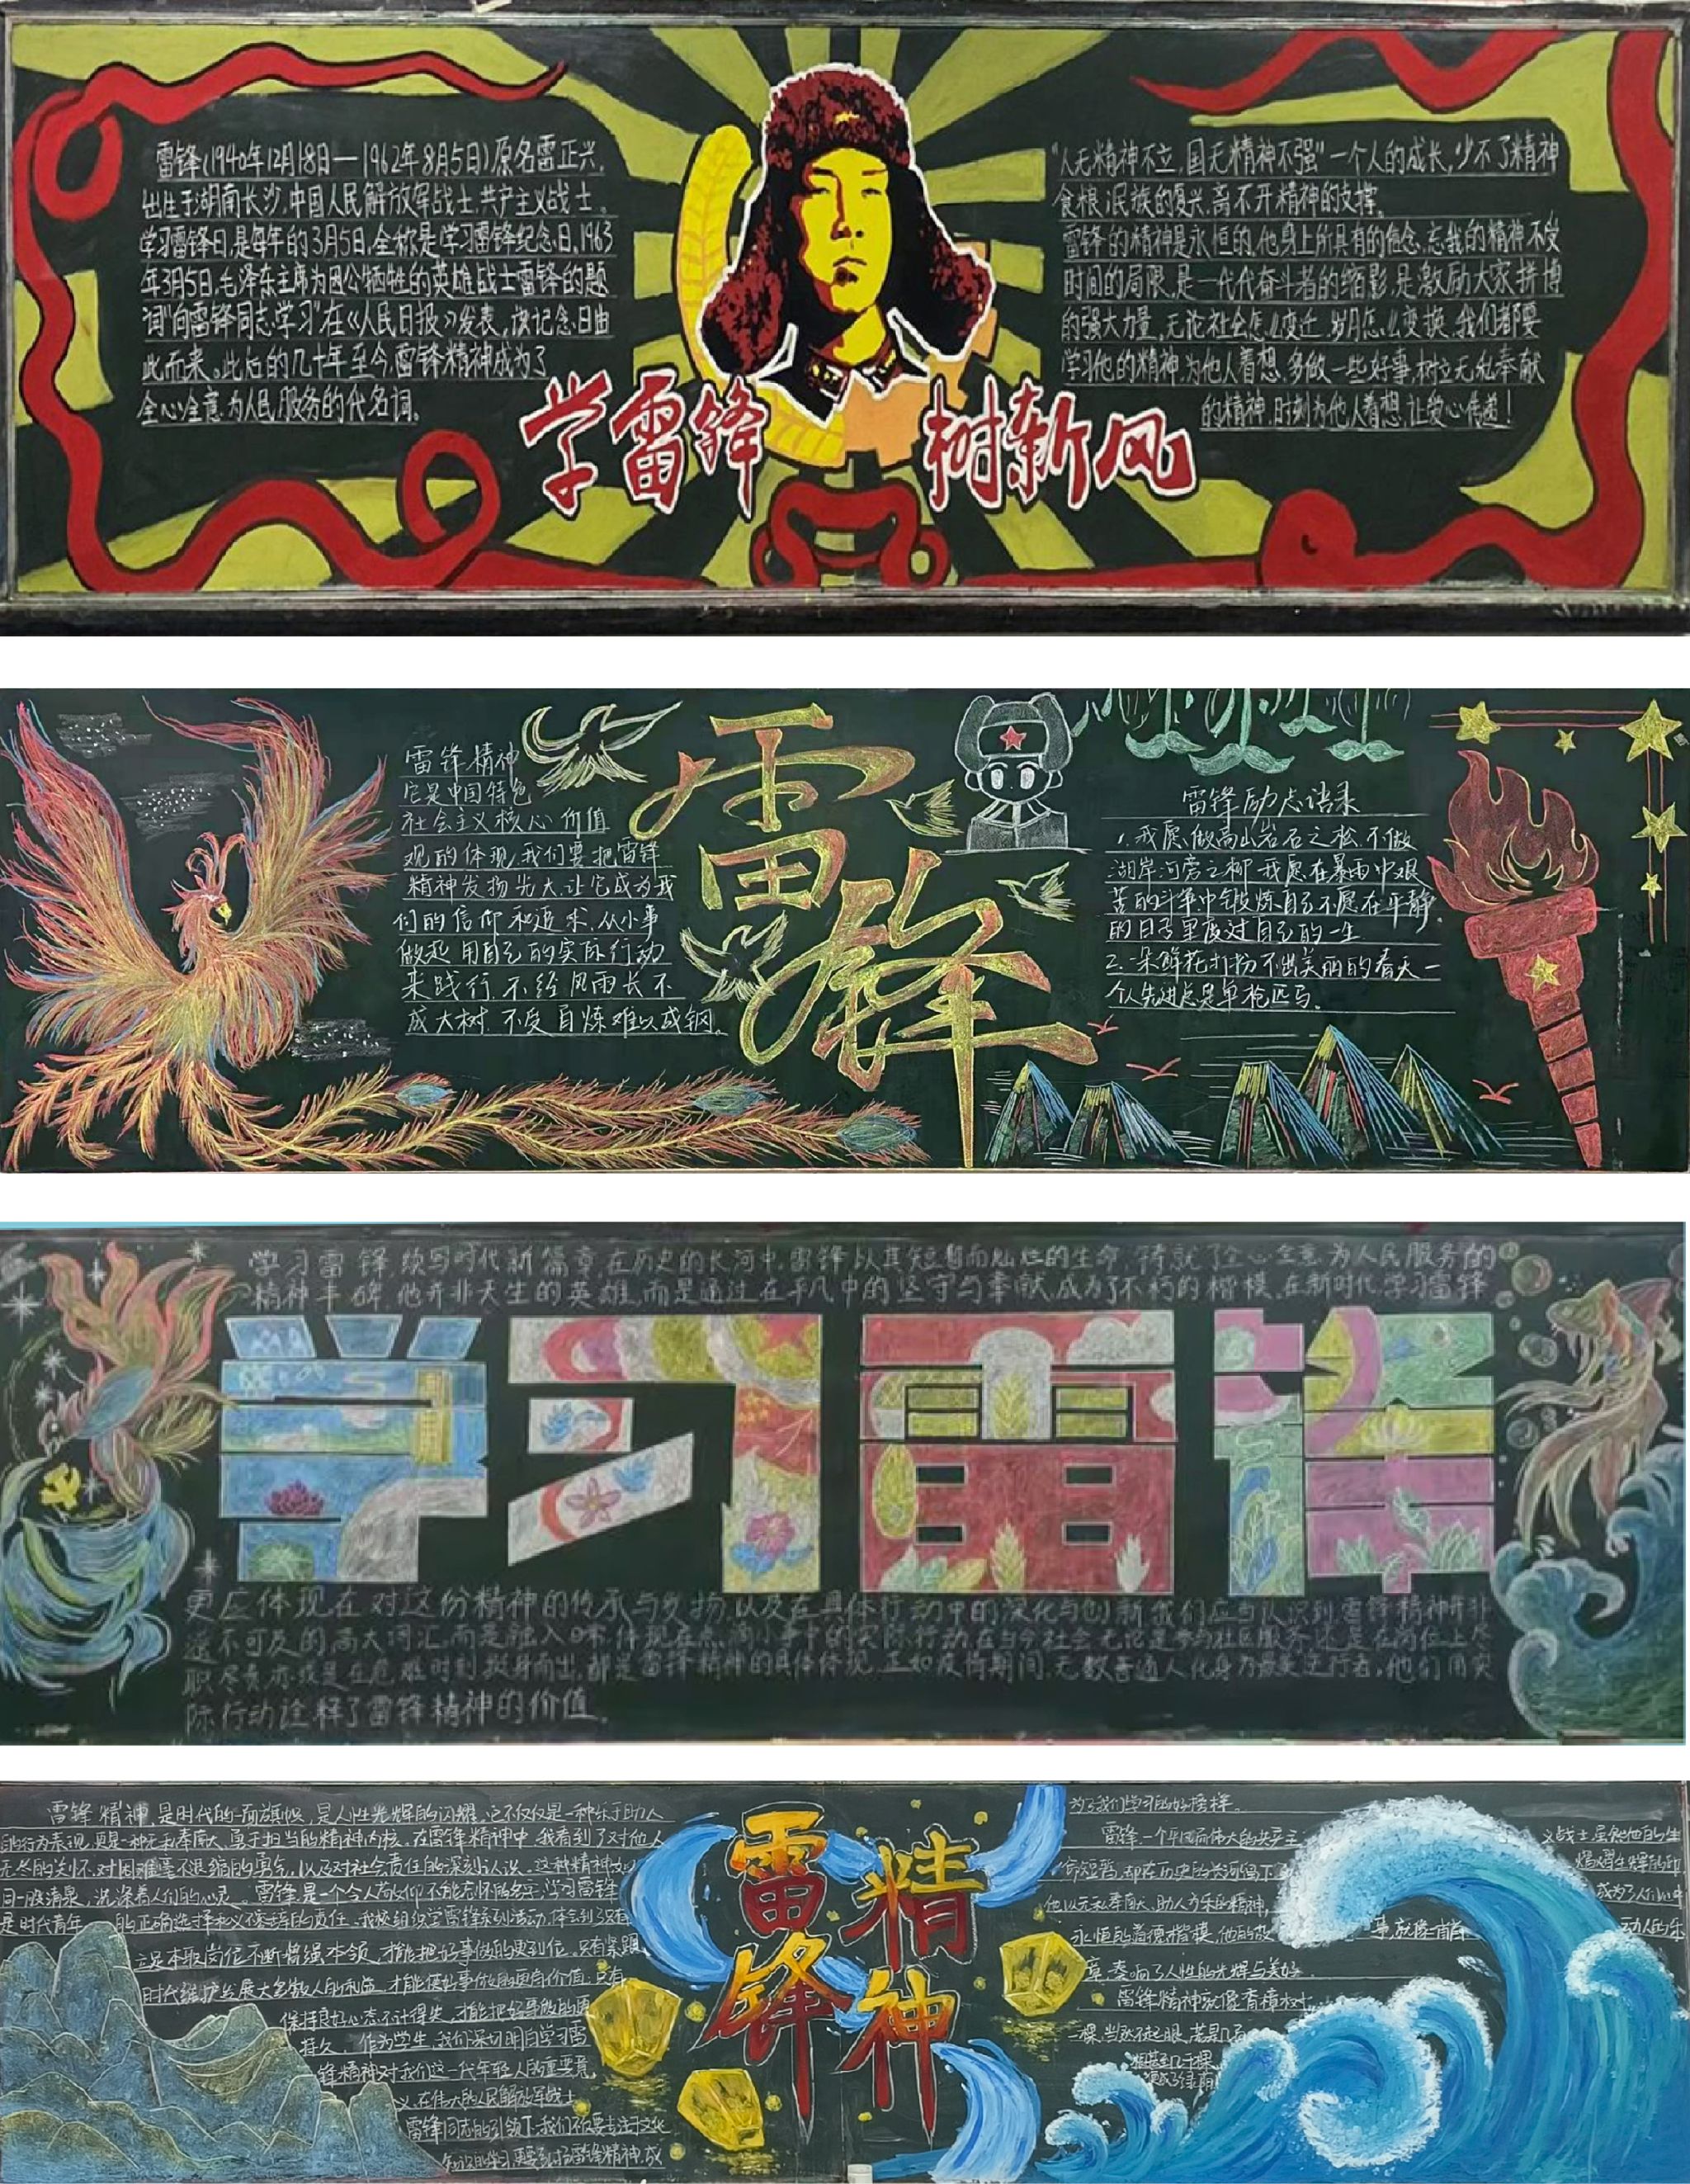 雷锋(1940年12月18日—1962年8月5日)原名雷正兴,
出生于湖南长沙,中国人民解放军战士,共产主义战士。
学习雷锋日,是每年的3月5日,全称是学习雷锋纪念日,1963
年3月5日,毛泽东主席为因公牺牲的英雄战士雷锋的题
词"向雷锋同志学习"在《人民日报》发表,该记念日由
此而来。此后的几十年至今,雷锋精神成为了
全心全意为人民服务的代名词。
学雷锋 树新风
"人无精神不立,国无精神不强"一个人的成长,少不了精神
食粮,民族的复兴,离不开精神的支撑。
雷锋的精神是永恒的,他身上所具有的信念,忘我的精神不受
时间的局限,是一代代奋斗者的缩影,是激励大家拼搏
的强大力量。无论社会怎么变迁,岁月怎么变换,我们都要
学习他的精神,为他人着想,多做一些好事,树立无私奉献
的精神,时刻为他人着想,让爱心传递!
雷锋精神
它是中国特色
社会主义核心价值
观的体现,我们要把雷锋
精神发扬光大,让它成为我
们的信仰和追求,从小事
做起,用自己的实际行动
来践行,不经风雨长不
成大树,不受百炼难以成钢。
雷锋
雷锋励志语录
1.我愿做高山岩石之松,不做
湖岸河旁之柳,我愿在暴雨中艰
苦的斗争中锻炼自己不愿在平静
的日子里度过自己的一生
2.一朵鲜花打扮不出美丽的春天一
个人先进总是单枪匹马。
学习雷锋续写时代新篇章,在历史的长河中,雷锋以其短暂而灿烂的生命,铸就了全心全意为人民服务的
精神丰碑,他并非天生的英雄,而是通过在平凡中的坚守与奉献,成为了不朽的楷模,在新时代,学习雷锋
学习雷锋
更应体现在对这份精神的传承与发扬,以及在具体行动中的深化与创新,我们应当认识到,雷锋精神并非
遥不可及的高大词汇,而是融入日常,体现在点滴小事中的实际行动,在当今社会,无论是参与社区服务,还是在岗位上尽
职尽责,亦或是在危难时刻挺身而出,都是雷锋精神的具体体现,正如疫情期间,无数普通人化身为最美逆行者,他们用实
际行动诠释了雷锋精神的价值。
雷锋精神,是时代的一面旗帜,是人性光辉的闪耀,它不仅仅是一种乐于助人
的行为表现,更是一种无私奉献、勇于担当的精神内核。在雷锋精神中,我看到了对他人
无尽的关怀,对困难毫不退缩的勇气,以及对社会责任的深刻认识。这种精神如
同一股清泉,洗涤着人们的心灵。雷锋,是一个令人敬仰不能忘怀的名字,学习雷锋
是时代青年 的正确选择和义不容辞的责任,我校组织学雷锋系列活动,体会到只有
立足本职岗位,不断增强本领,才能把好事做的更到位。只有紧跟
时代维护发展大多数人的利益,才能使好事做的更有价值,只有
保持良好心态,不计得失,才能把好事做的更
持久。作为学生,我们深切明白学习雷
锋精神对我们这一代年轻人的重要意
义,在伟大的人民解放军战士
雷锋同志的引领下,我们不仅要专注于文化
知识的学习,更要学习雷锋精神,成
雷锋精神
为了我们学习的好榜样。
雷锋,一个平凡而伟大的共产主 义战士,虽然他的生
命短暂,却在历史的长河留下 熠熠生辉的印
他以无私奉献、助人为乐的精神, 成为了人们心中
永恒的道德楷模,他的故 事,就像一首 动人的乐
章,奏响了人性的光辉与美好。
雷锋精神就像香樟树,
一棵,当然不起眼,若是几百
棵甚至几千棵